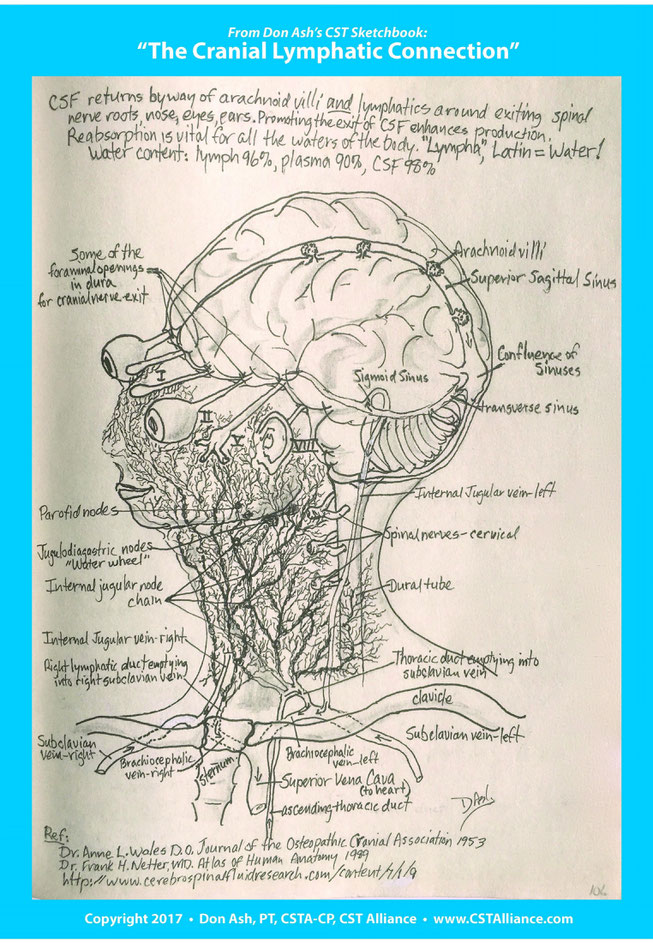 From Don Ash's CST Sketchbook:
"The Cranial Lymphatic Connection"
CSF returns by way of arachnoid villi and lymphatics around exiting spinal
nerve roots, nose, eyes, ears. Promoting the exit of CSF enhances production.
Reabsorption is vital for all the waters of the body. "Lympha", Latin = Water!
Water content: lymph 96%, plasma 90%, CSF 98%
Some of the
foraminal openings
in dura
for cranial nerve exit
Arachnoid villi
Superior Sagittal Sinus
Confluence of
Sinuses
Sigmoid Sinus
transverse sinus
I
II
V
VIII
Internal Jugular vein-left
Parotid nodes
Spinal nerves-cervical
Jugulodiagastric nodes
"Water wheel"
Internal jugular node
chain
Dural tube
Internal Jugular vein-right
Right lymphatic duct emptying
into right subclavian vein
Thoracic duct emptying into
subclavian vein
clavicle
Subclavian
vein-right
Brachiocephalic
vein-right
Sternum
Brachiocephalic
vein-left
Subclavian vein-left
Superior Vena Cava
(to heart)
ascending thoracic duct
DAsh
Ref:
Dr. Anne L. Wales D.O. Journal of the Osteopathic Cranial Association 1953
Dr. Frank H. Netter, MD. Atlas of Human Anatomy 1989
106
Copyright 2017 • Don Ash, PT, CSTA-CP, CST Alliance • www.CSTAlliance.com